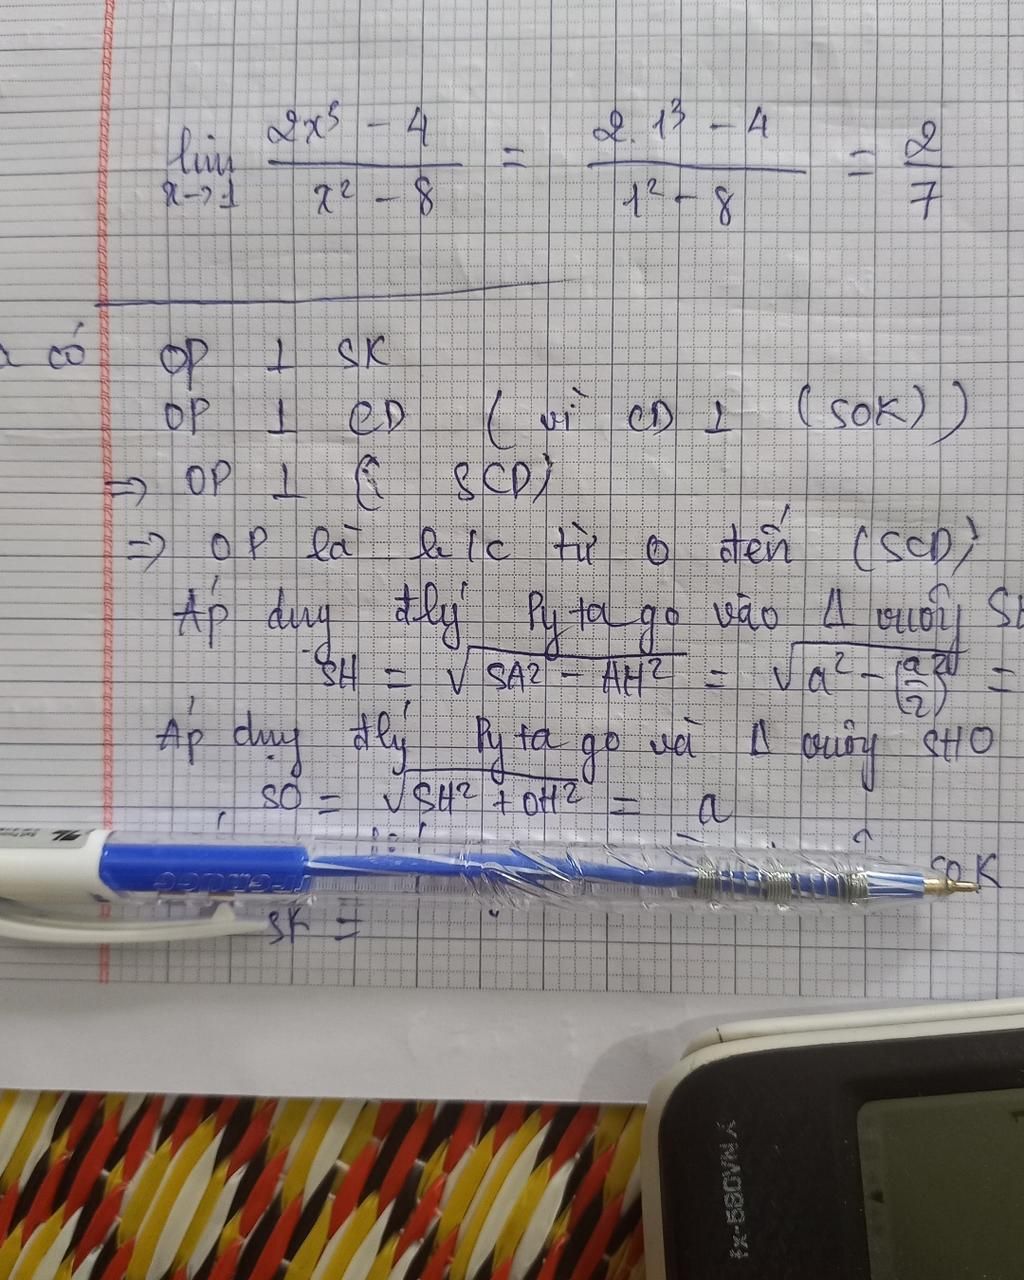 lim x→1 (2x³ - 4)/(x² - 8) = (2.1³ - 4)/(1² - 8) = 2/7
có OP ⊥ SK
OP ⊥ CD ( vì CD ⊥ (SOK))
⇒ OP ⊥ ( SCD)
⇒ OP là k/c từ O đến (SCD)
Áp dụng đlý Pytago vào Δ vuông
SH = √(SA² - AH²) = √(a² - (a/2)²) =
Áp dụng đlý Pytago và Δ vuông SHO
SO = √(SH² + OH²) = a
SOK
SK =
fx-580VN X